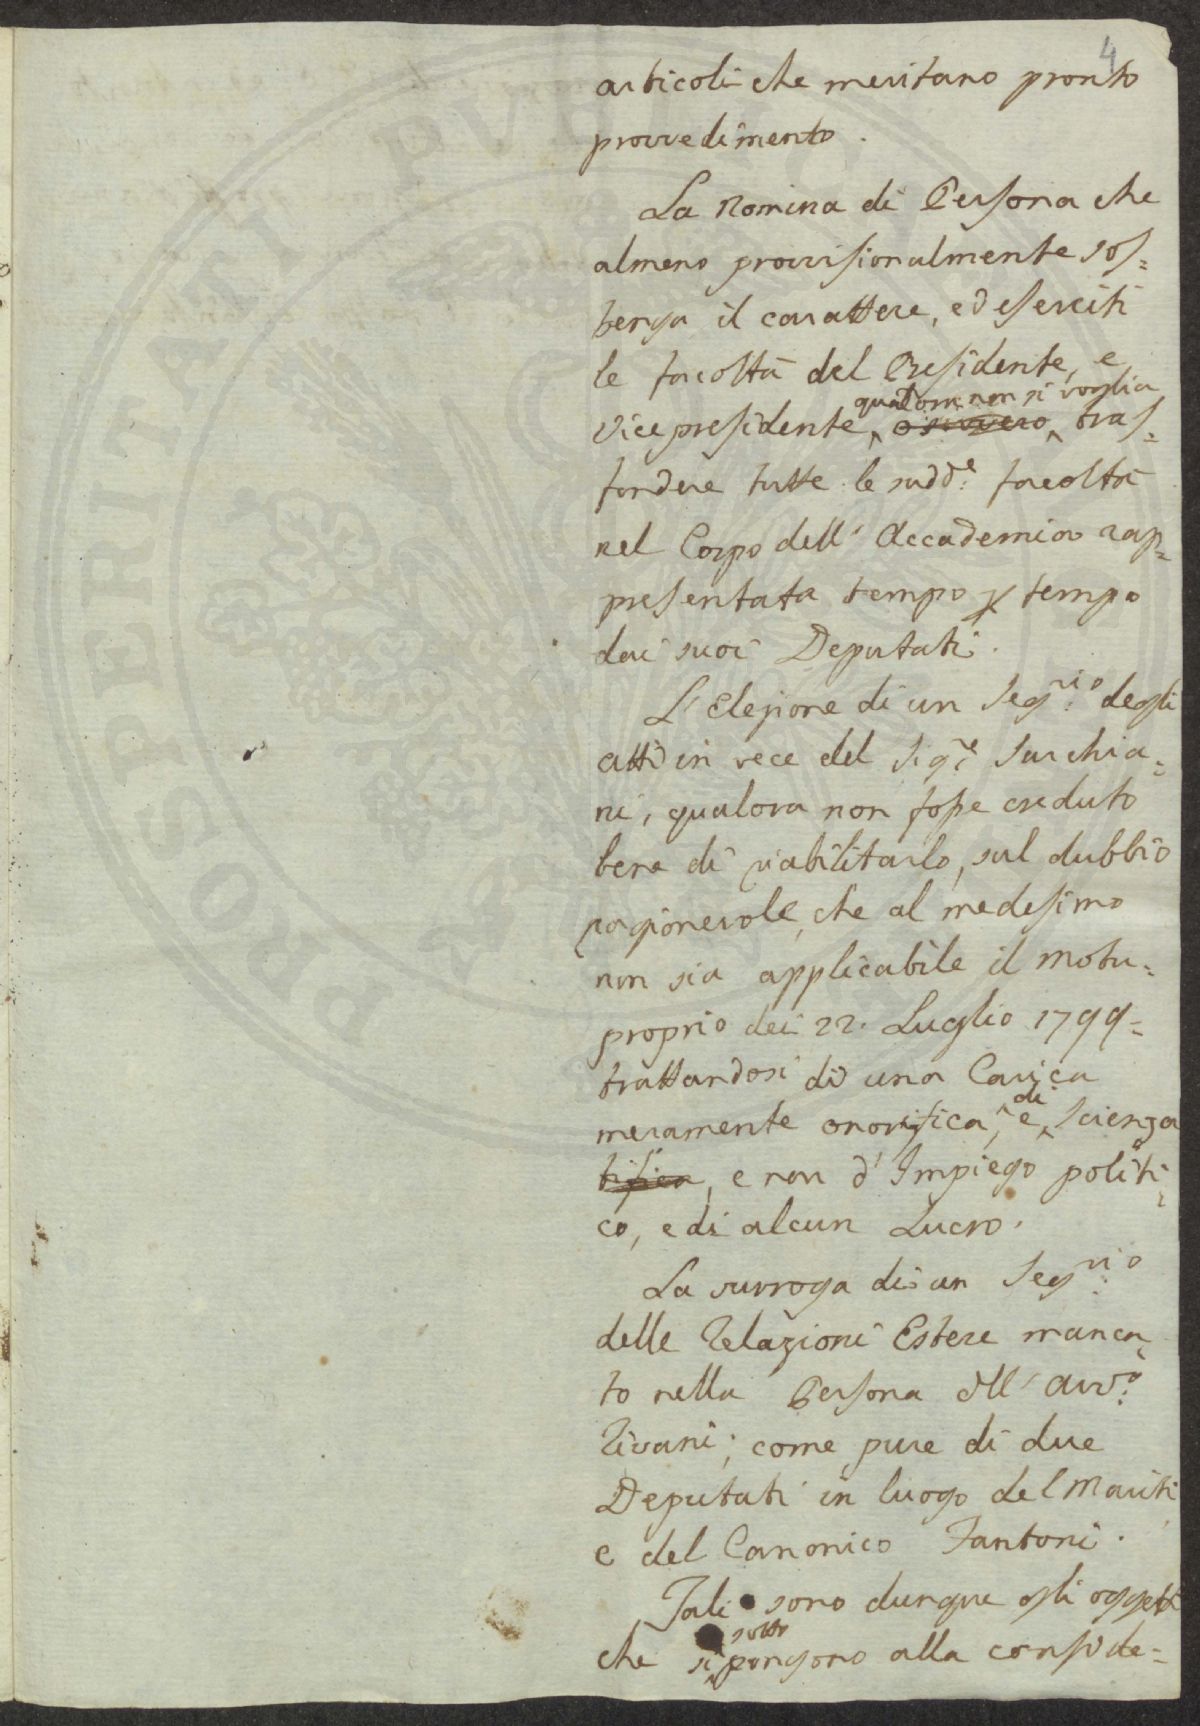 4
articoli che meritano pronto
provvedimento.
La Nomina di Persona che
almeno provvisionalmente sos=
tenga il carattere, ed eserciti
le facoltà del Presidente, e
qualora non si voglia
Vicepresidente, o sivvero, tras=
fondere tutte le sudd.e facoltà
nel Corpo dell' Accademia rap=
presentata tempo p tempo
dai suoi Deputati.
L'Elezione di un Seg.rio degli
atti in vece del Sig.re Sarchia=
ni, qualora non fosse creduto
bene di riabilitarlo, sul dubbio
ragionevole, che al medesimo
non sia applicabile il Motu=
proprio dei 22. Luglio 1799=
trattandosi di una Carica
di
meramente onorifica, e Scienza
tifica, e non d'Impiego politi=
co, e di alcun Lucro.
La surroga di un Seg.rio
delle Relazioni Estere manca=
to nella Persona dll' Avv.o
Rivani; come pure di due
Deputati in luogo del Mariti
e del Canonico Fantoni.
Tali sono dunque gli oggetti
sotto
che si pongono alla conside=
PROSPERITATI PVBLICAE